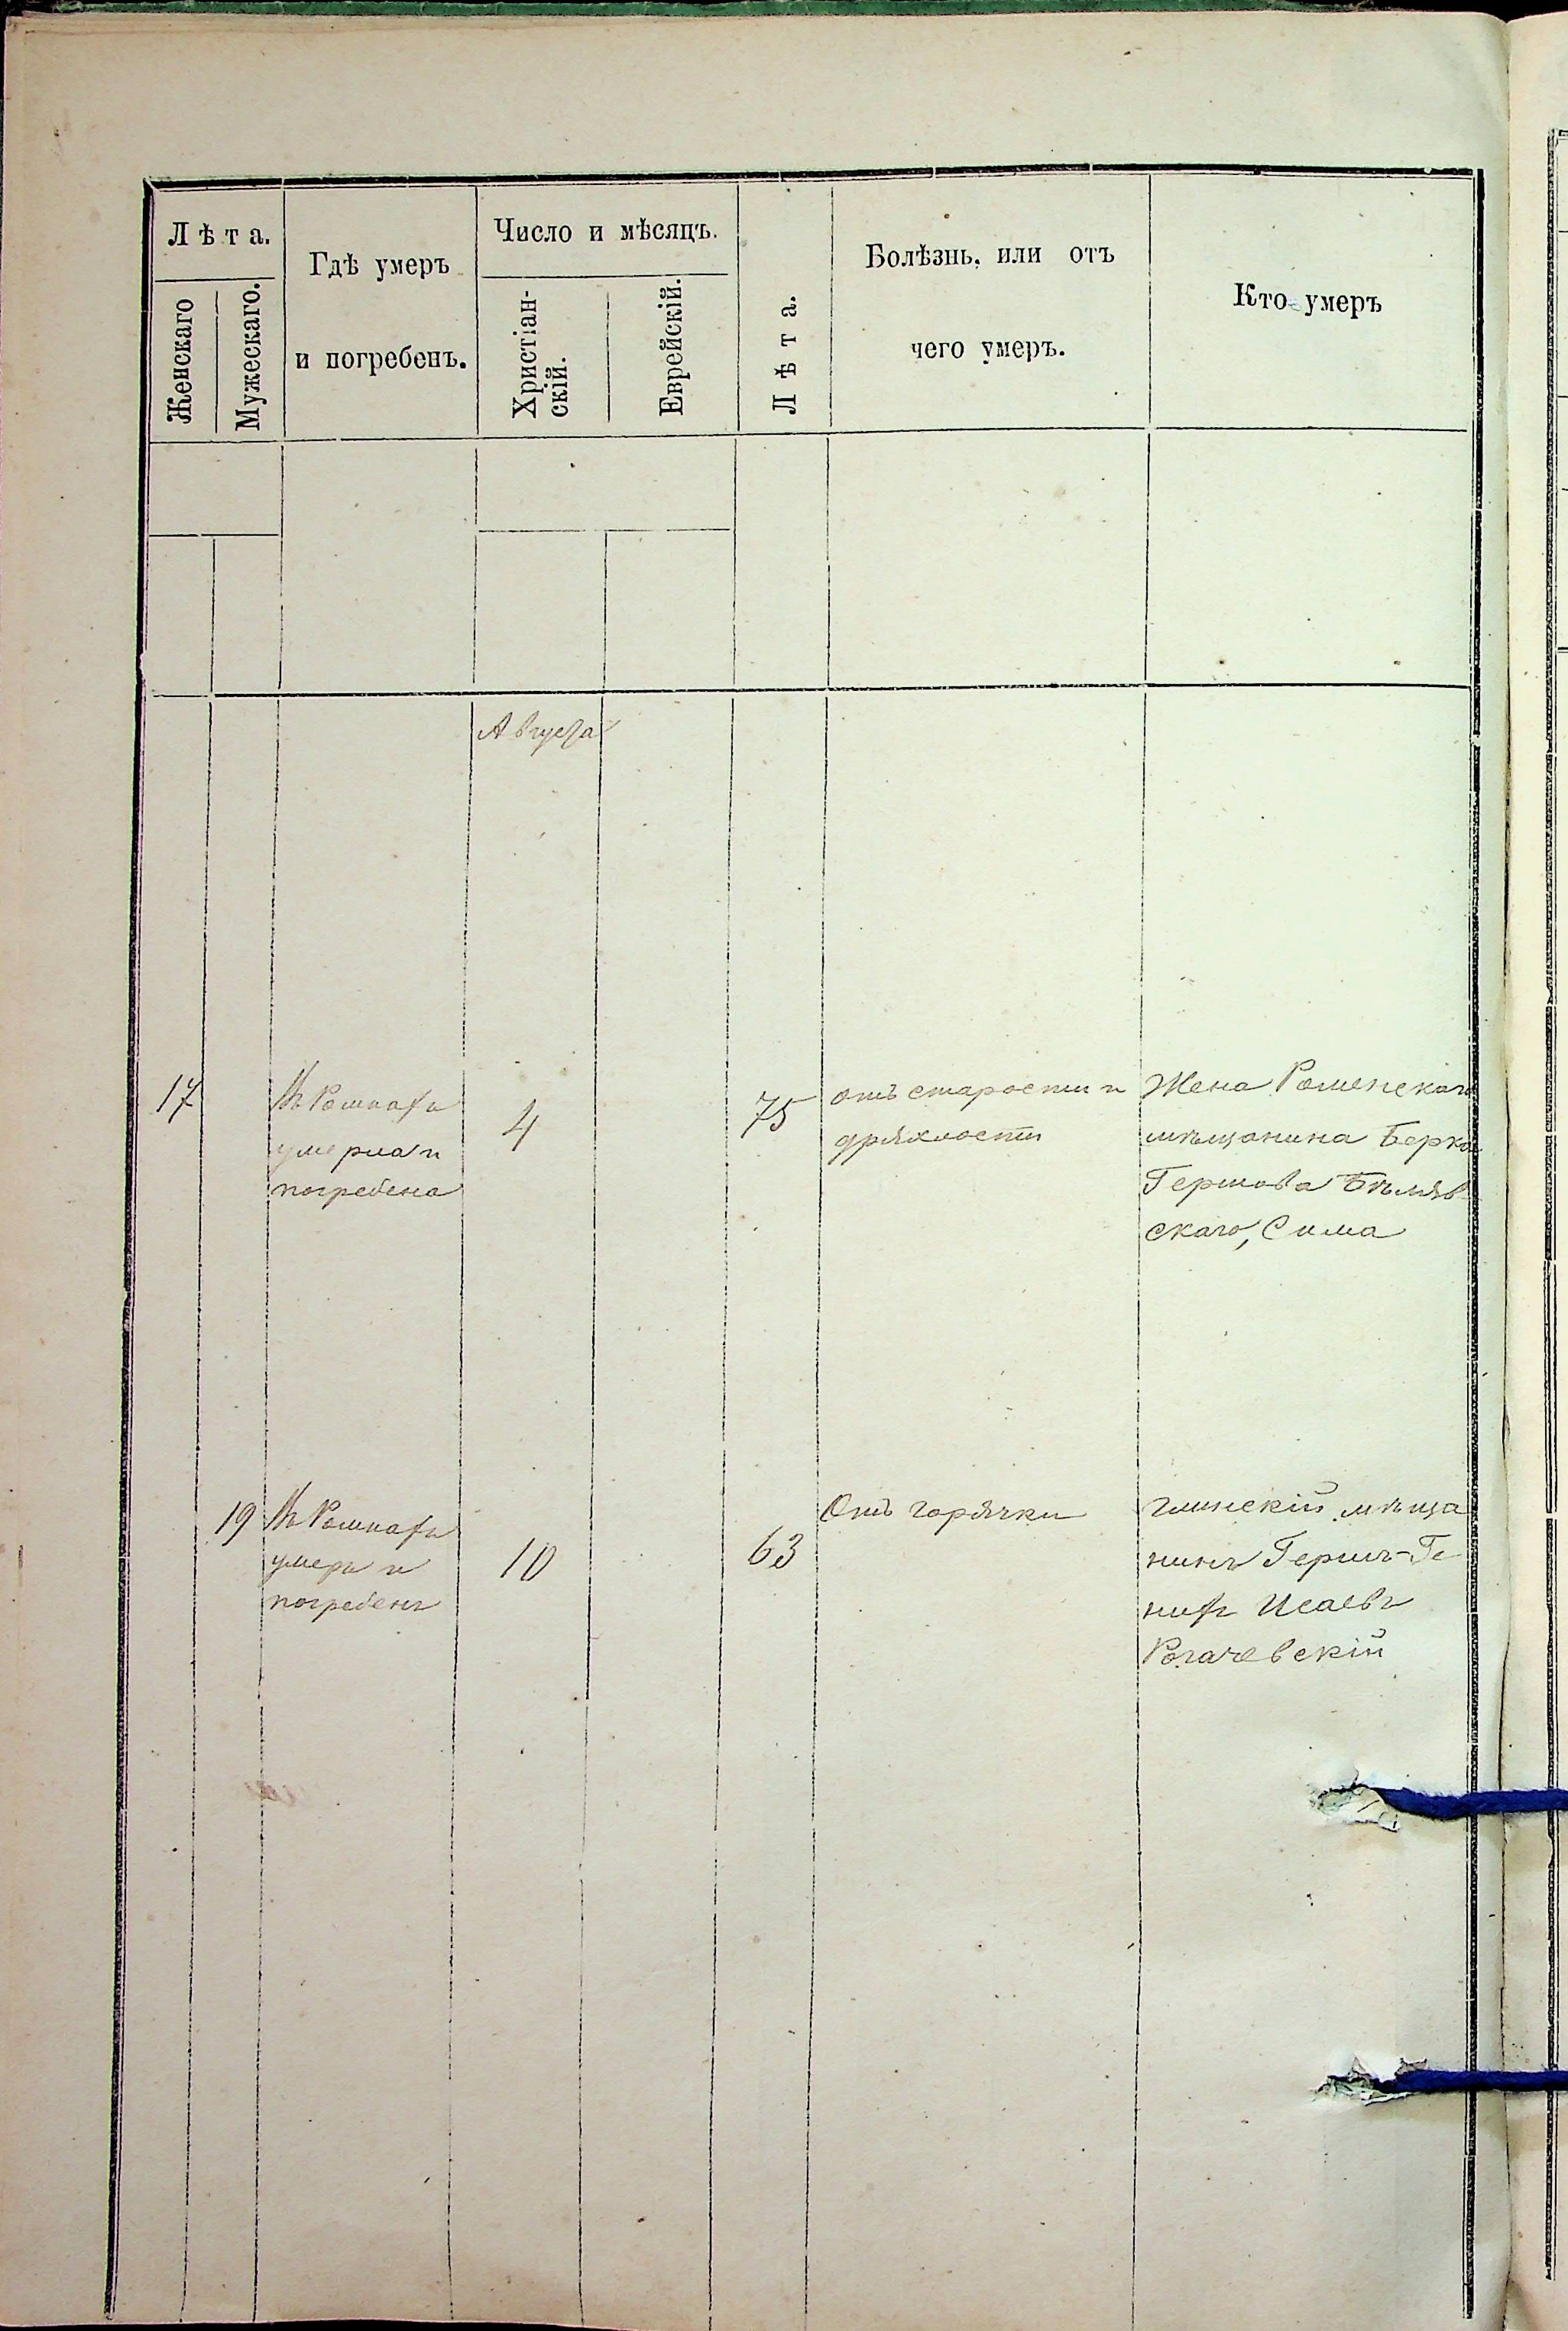 Лѣта.
Женскаго
Мужескаго.
Гдѣ умеръ
и погребенъ.
Число и мѣсяцъ.
Христіан-
скій.
Еврейскій.
Лѣта.
Болѣзнь, или отъ
чего умеръ.
Кто умеръ
Августа
17
Въ Ромнахъ
умерла и
погребена
4
75
отъ старости и
дряхлости
Жена Роменскаго
мѣщанина Берка
Гершова Бѣляв
скаго, Сима
19
Въ Ромнахъ
умеръ и
погребенъ
10
63
Отъ горячки
Глинскій мѣща
нинъ Гершъ-Ге
нихъ Исаевъ
Рогачевскій